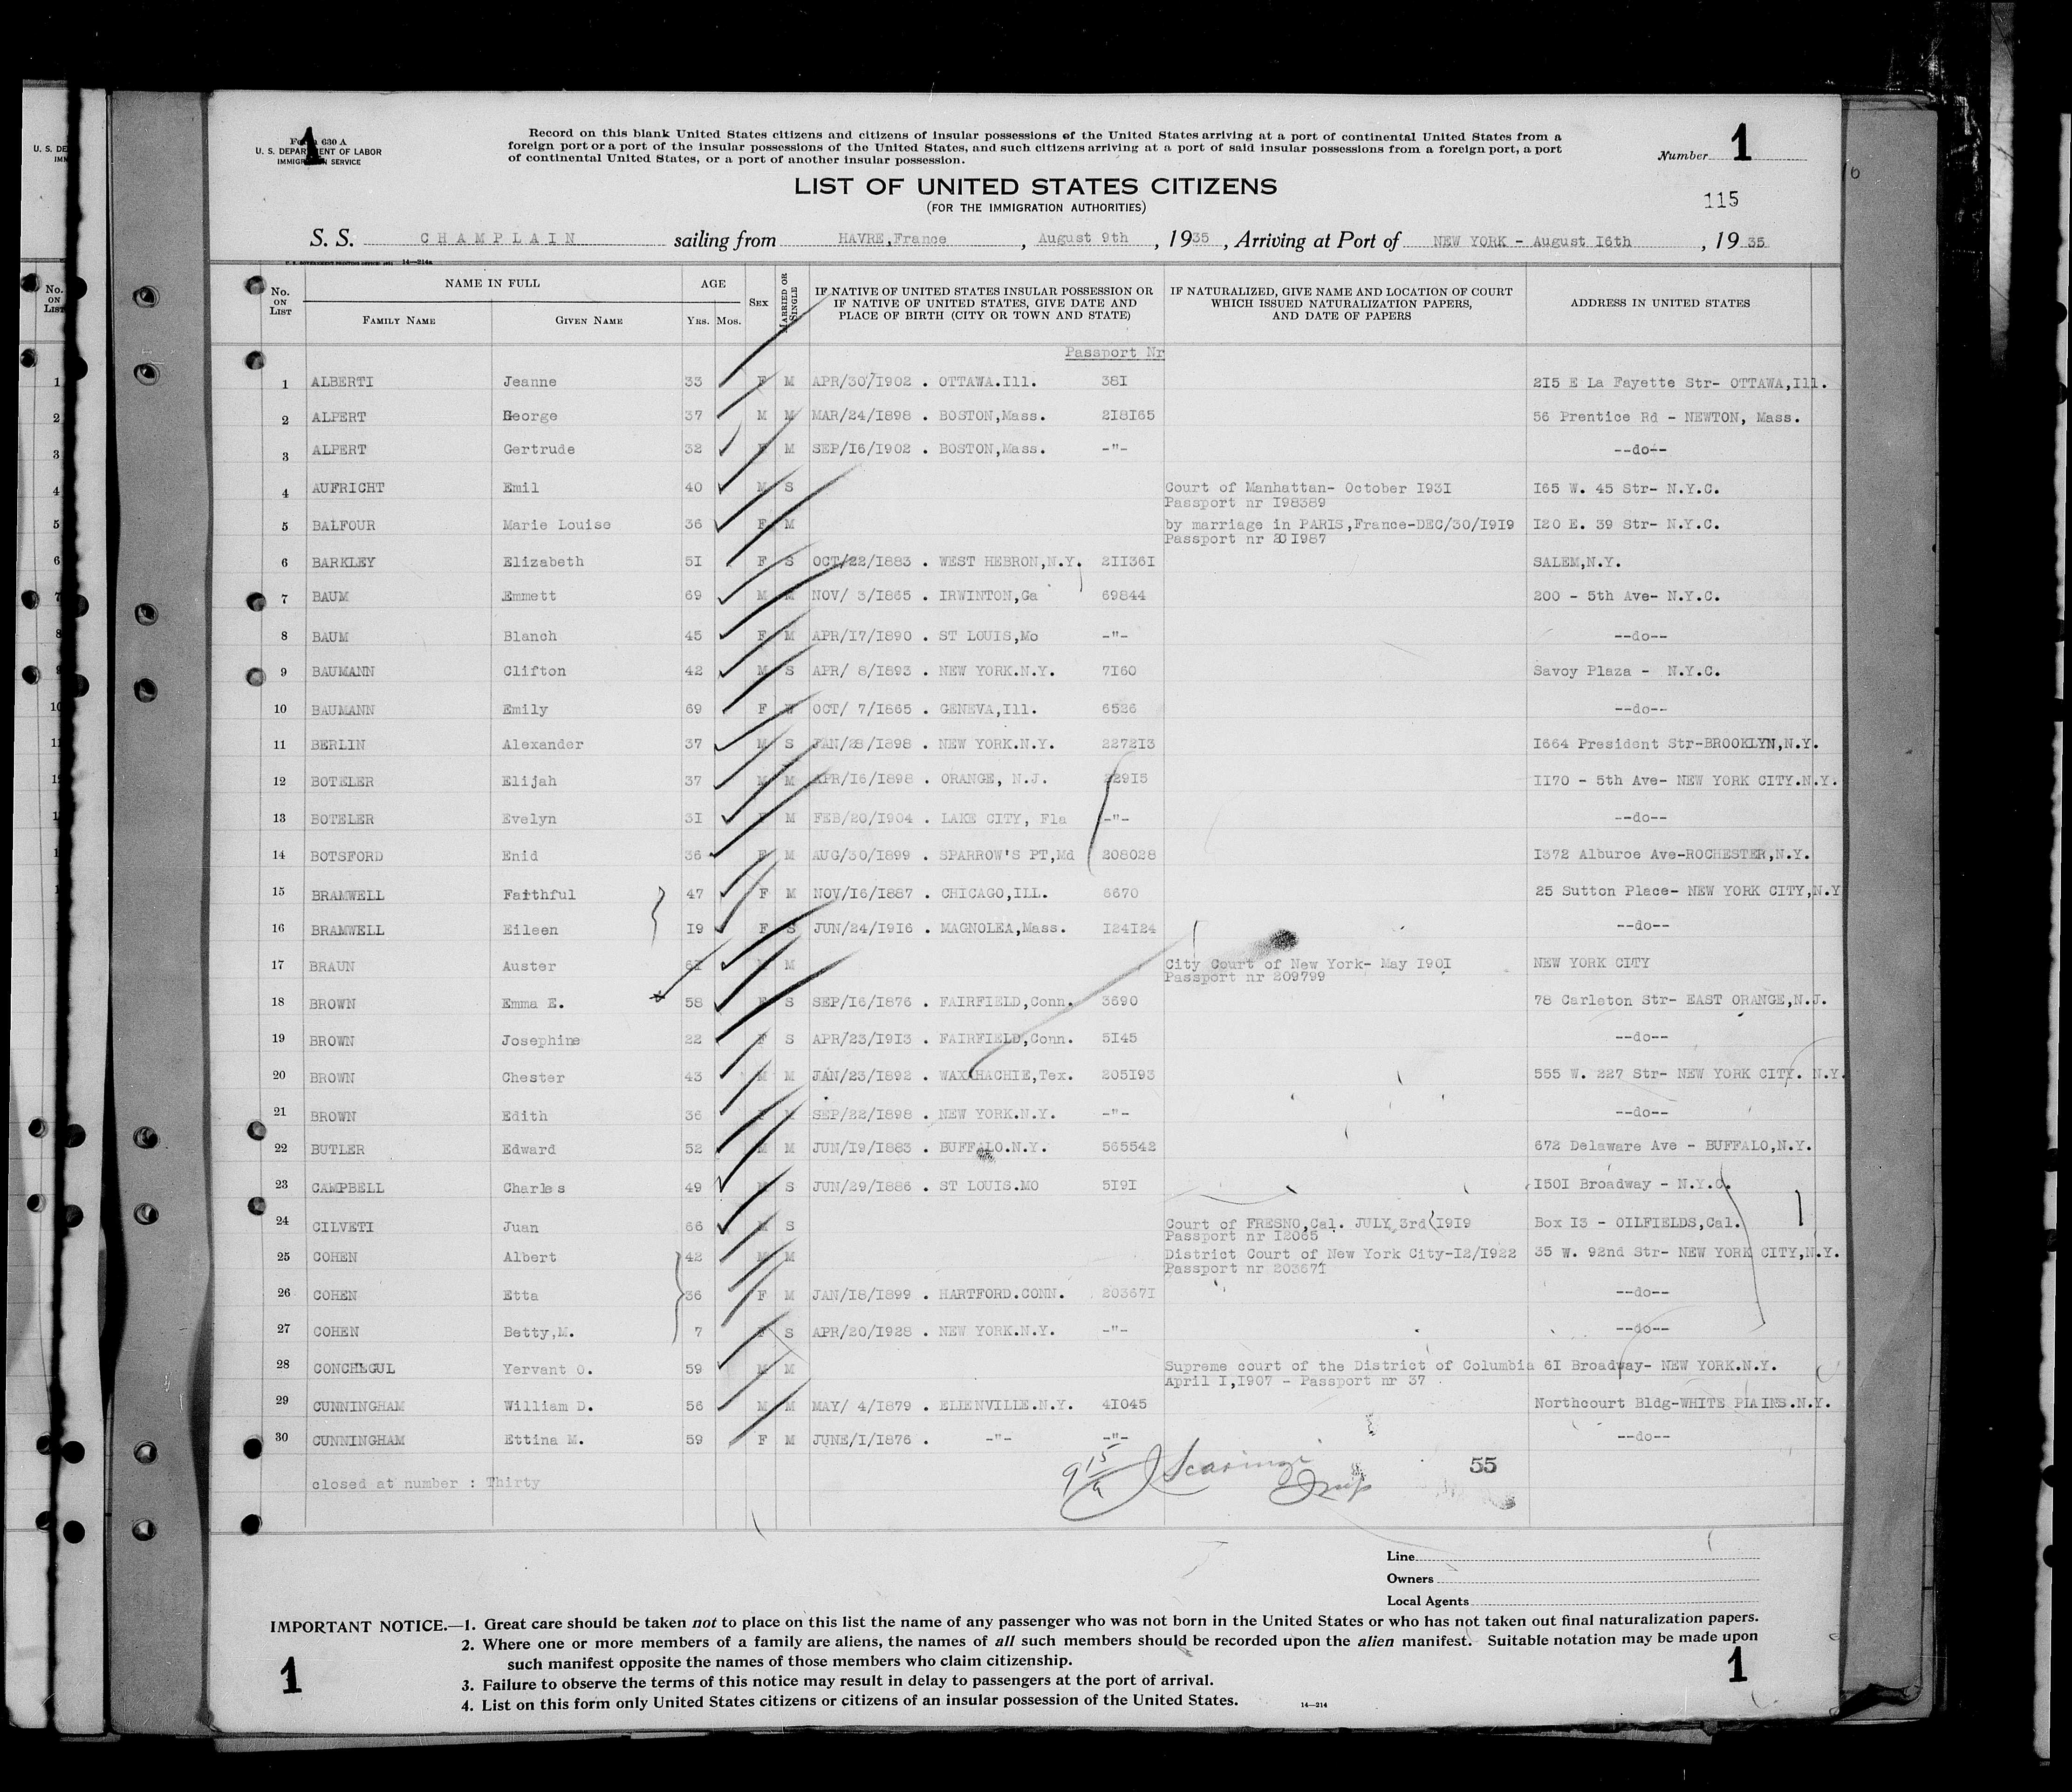 Form 630 A
U. S. DEPARTMENT OF LABOR
IMMIGRATION SERVICE
1
Record on this blank United States citizens and citizens of insular possessions of the United States arriving at a port of continental United States from a
foreign port or a port of the insular possessions of the United States, and such citizens arriving at a port of said insular possessions from a foreign port, a port
of continental United States, or a port of another insular possession.
Number 1
LIST OF UNITED STATES CITIZENS
(FOR THE IMMIGRATION AUTHORITIES)
115
S. S. CHAMPLAIN sailing from HAVRE,France , August 9th , 1935 , Arriving at Port of NEW YORK - August I6th , 19 35
No. ON LIST NAME IN FULL FAMILY NAME GIVEN NAME AGE YRS. MOS. SEX MARRIED OR SINGLE IF NATIVE OF UNITED STATES INSULAR POSSESSION OR IF NATIVE OF UNITED STATES, GIVE DATE AND PLACE OF BIRTH (CITY OR TOWN AND STATE) IF NATURALIZED, GIVE NAME AND LOCATION OF COURT WHICH ISSUED NATURALIZATION PAPERS, AND DATE OF PAPERS ADDRESS IN UNITED STATES
Passport Nr
1 ALBERTI Jeanne 33 F M APR/30/I902 . OTTAWA.Ill. 38I 2I5 E La Fayette Str- OTTAWA,Ill.
2 ALPERT George 37 M M MAR/24/I898 . BOSTON,Mass. 2I8I65 56 Prentice Rd - NEWTON, Mass.
3 ALPERT Gertrude 32 F M SEP/I6/I902 . BOSTON,Mass. -"- --do--
4 AUFRICHT Emil 40 M S Court of Manhattan- October I93I I65 W. 45 Str- N.Y.C.
Passport nr I98389
5 BALFOUR Marie Louise 36 F M by marriage in PARIS,France-DEC/30/I9I9 I20 E. 39 Str- N.Y.C.
Passport nr 20I987
6 BARKLEY Elizabeth 5I F S OCT/22/I883 . WEST HEBRON,N.Y. 2II36I SALEM,N.Y.
7 BAUM Emmett 69 M M NOV/ 3/I865 . IRWINTON,Ga 69844 200 - 5th Ave- N.Y.C.
8 BAUM Blanch 45 F M APR/I7/I890 . ST LOUIS,Mo -"- --do--
9 BAUMANN Clifton 42 M S APR/ 8/I893 . NEW YORK.N.Y. 7I60 Savoy Plaza - N.Y.C.
10 BAUMANN Emily 69 F W OCT/ 7/I865 . GENEVA,Ill. 6526 --do--
11 BERLIN Alexander 37 M S JAN/28/I898 . NEW YORK.N.Y. 2272I3 I664 President Str-BROOKLYN,N.Y.
12 BOTELER Elijah 37 M M APR/I6/I898 . ORANGE, N.J. 229I5 II70 - 5th Ave- NEW YORK CITY.N.Y.
13 BOTELER Evelyn 3I F M FEB/20/I904 . LAKE CITY, Fla -"- --do--
14 BOTSFORD Enid 36 F M AUG/30/I899 . SPARROW'S PT,Md 208028 I372 Alburoe Ave-ROCHESTER,N.Y.
15 BRAMWELL Faithful 47 F M NOV/I6/I887 . CHICAGO,ILL. 6670 25 Sutton Place- NEW YORK CITY,N.Y
16 BRAMWELL Eileen I9 F S JUN/24/I9I6 . MAGNOLEA,Mass. I24I24 --do--
17 BRAUN Auster 6I M M City Court of New York- May I90I NEW YORK CITY
Passport nr 209799
18 BROWN Emma E. 58 F S SEP/I6/I876 . FAIRFIELD,Conn. 3690 78 Carleton Str- EAST ORANGE,N.J.
19 BROWN Josephine 22 F S APR/23/I9I3 . FAIRFIELD,Conn. 5I45 --do--
20 BROWN Chester 43 M M JAN/23/I892 . WAXAHACHIE,Tex. 205I93 555 W. 227 Str- NEW YORK CITY. N.Y.
21 BROWN Edith 36 F M SEP/22/I898 . NEW YORK.N.Y. -"- --do--
22 BUTLER Edward 52 M M JUN/I9/I883 . BUFFALO.N.Y. 565542 672 Delaware Ave - BUFFALO,N.Y.
23 CAMPBELL Charles 49 M S JUN/29/I886 . ST LOUIS.MO 5I9I I50I Broadway - N.Y.C.
24 CILVETI Juan 66 M S Court of FRESNO,Cal. JULY 3rd I9I9 Box I3 - OILFIELDS,Cal.
Passport nr I2065
25 COHEN Albert 42 M M District Court of New York City-I2/I922 35 W. 92nd Str- NEW YORK CITY,N.Y.
Passport nr 20367I
26 COHEN Etta 36 F M JAN/I8/I899 . HARTFORD.CONN. 20367I --do--
27 COHEN Betty,M. 7 F S APR/20/I928 . NEW YORK.N.Y. -"- --do--
28 CONCHEGUL Yervant O. 59 M M Supreme court of the District of Columbia 6I Broadway- NEW YORK.N.Y.
April I,I907 - Passport nr 37
29 CUNNINGHAM William D. 56 M M MAY/ 4/I879 . ELIENVILLE.N.Y. 4I045 Northcourt Bldg-WHITE PLAINS.N.Y.
30 CUNNINGHAM Ettina M. 59 F M JUNE/I/I876 . -"- -"- --do--
55
closed at number : Thirty
Line
Owners
Local Agents
IMPORTANT NOTICE.—1. Great care should be taken not to place on this list the name of any passenger who was not born in the United States or who has not taken out final naturalization papers.
2. Where one or more members of a family are aliens, the names of all such members should be recorded upon the alien manifest. Suitable notation may be made upon
such manifest opposite the names of those members who claim citizenship.
3. Failure to observe the terms of this notice may result in delay to passengers at the port of arrival.
4. List on this form only United States citizens or citizens of an insular possession of the United States.
14—214
1
1